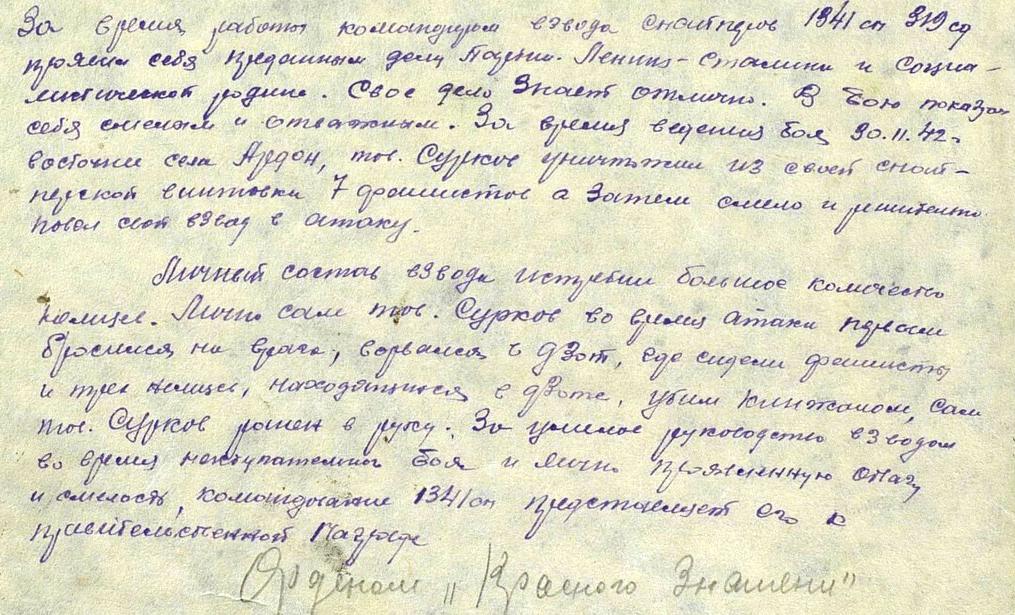 За время работы командиром взвода снайперов 1341 сп 319 сд
проявил себя преданным делу Партии Ленина-Сталина и социа-
листической родине. Свое дело знает отлично. В бою показал
себя смелым и отважным. За время ведения боя 30.11.42г
восточнее села Ардон, тов. Сурков уничтожил из своей снай-
перской винтовки 7 фашистов а затем смело и решительно
повел свой взвод в атаку.
Личный состав взвода истребил большое количество
немцев. Лично сам тов. Сурков во время атаки первым
бросился на врага, ворвался в дзот, где сидели фашисты
и трех немцев, находящихся в дзоте, убил кинжалом, сам
тов. Сурков ранен в руку. За умелое руководство взводом
во время наступательного боя и лично проявленную отвагу
и смелость, командование 1341 сп представляет его к
правительственной награде
Орденом „Красного Знамени"